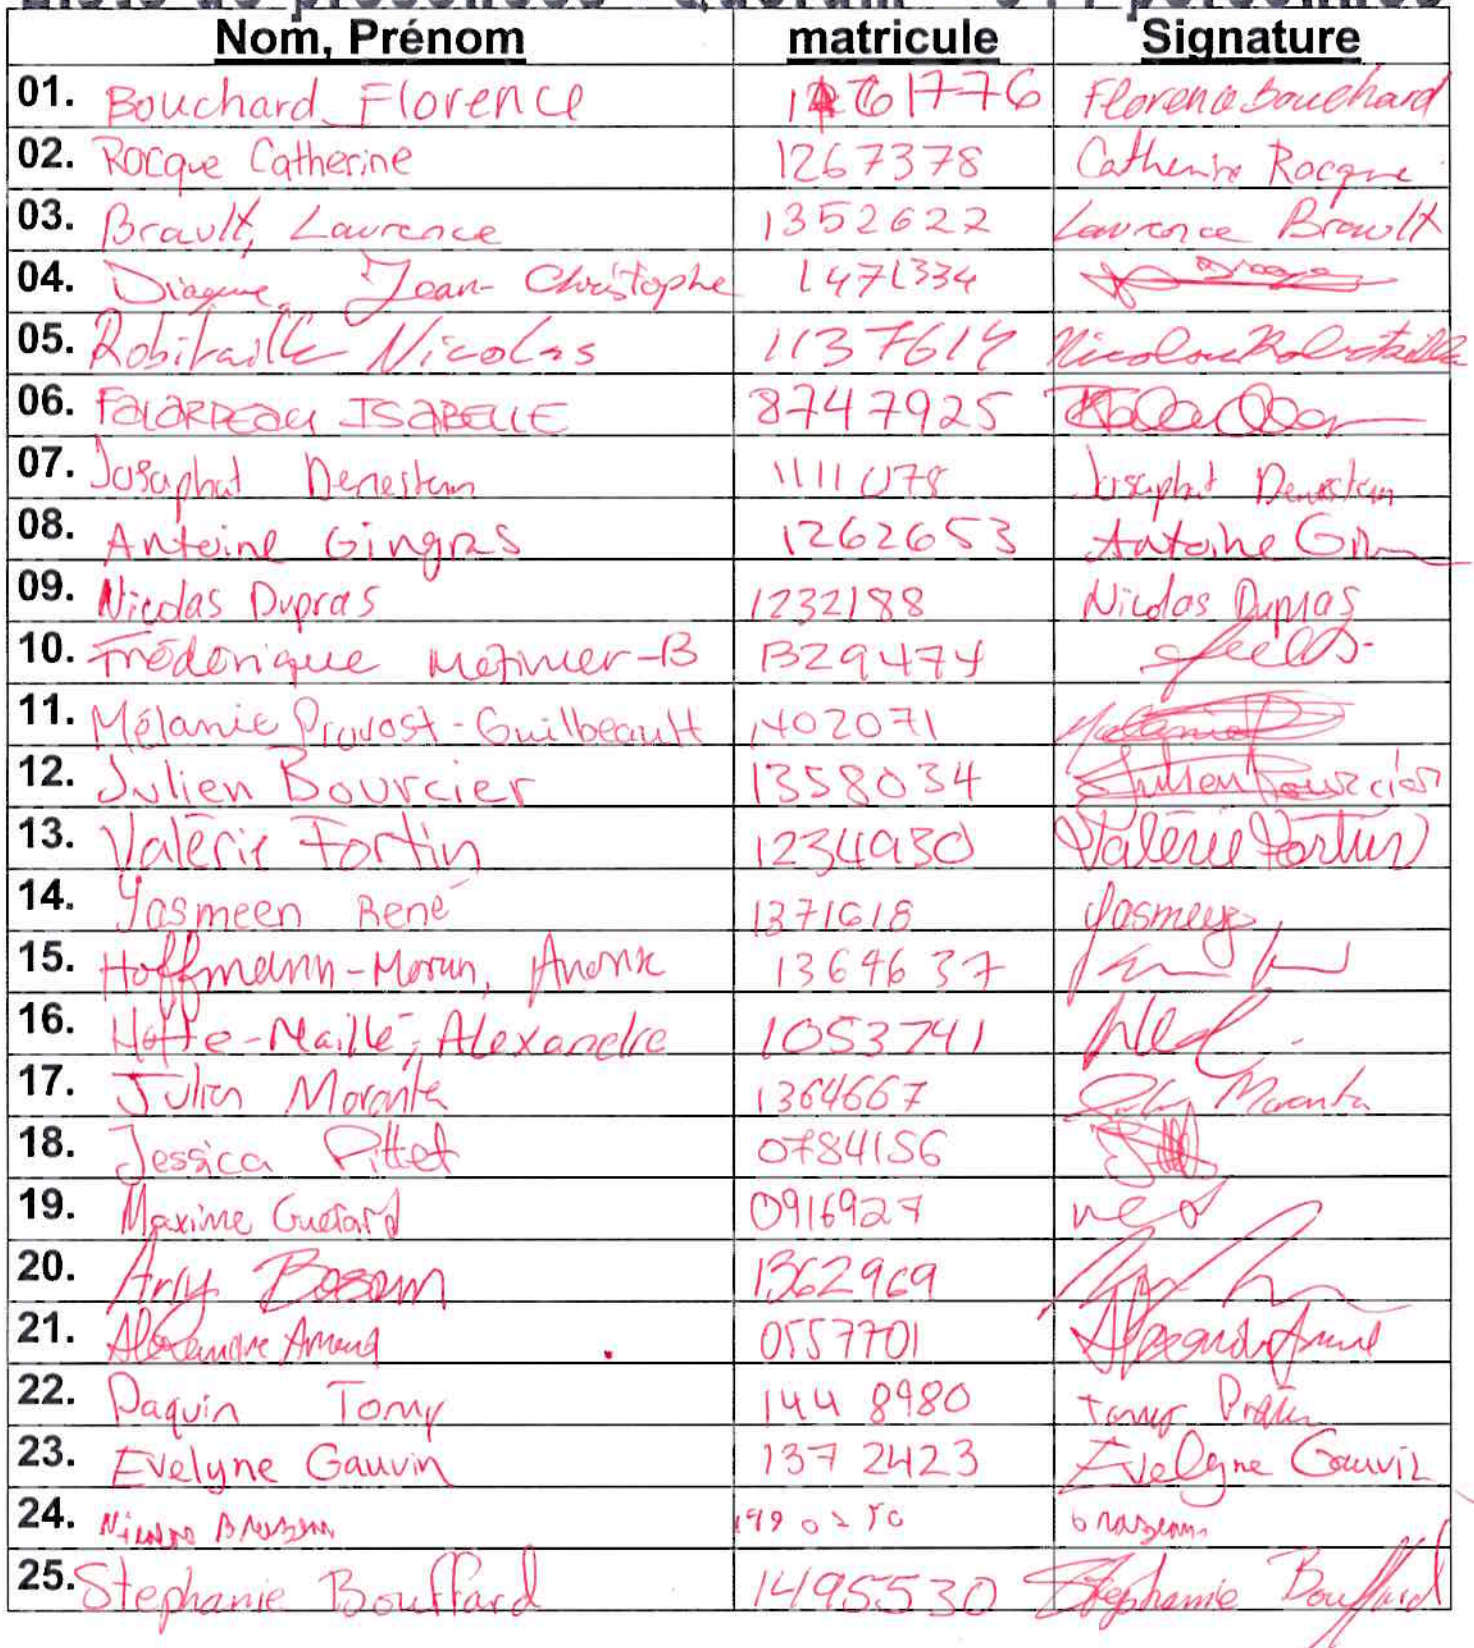 Liste de présences Quorum 51 personnes
Nom, Prénom matricule Signature
01. Bouchard, Florence 1261776 Florence Bouchard
02. Rocque Catherine 1267378 Catherine Rocque
03. Brault, Laurence 1352622 Laurence Brault
04. Diagne, Jean-Christophe 1471334
05. Robitaille Nicolas 1137614 Nicolas Robitaille
06. FALARDEAU ISABELLE 8747925
07. Josaphat Denestan 1111078 Josaphat Denestan
08. Antoine Gingras 1262653 Antoine
09. Nicolas Dupras 1232188 Nicolas Dupras
10. Frédérique -B 1329474
11. Mélanie Provost-Guilbeault 1402071
12. Julien Bourcier 1358034 Julien Bourcier
13. Valérie Fortin 1234930 Valérie Fortin
14. Yasmeen René 1371618
15. Hoffmann-Morun, 1364637
16. Hotte-Maillé, Alexandre 1053741
17. Julien Moranta 1364667 Moranta
18. Jessica Pittet 0784156
19. Maxime Guérard 0916927
20. Arly Bosom 1362969
21. Alexandre Amand 0557701
22. Paquin Tomy 144 8980
23. Evelyne Gauvin 137 2423 Evelyne Gauvin
24.
25. Stephanie Bouffard 1495530 Stephanie Bouffard